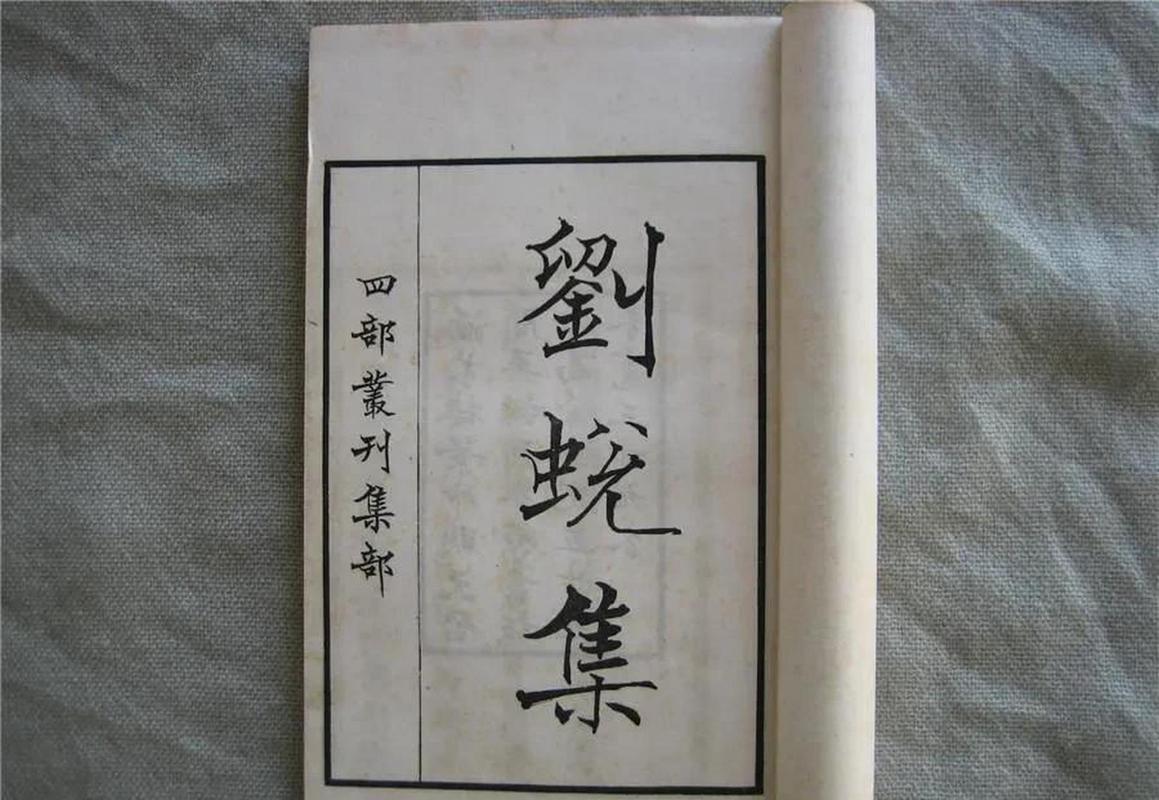 劉蛻集
四部叢刊集部